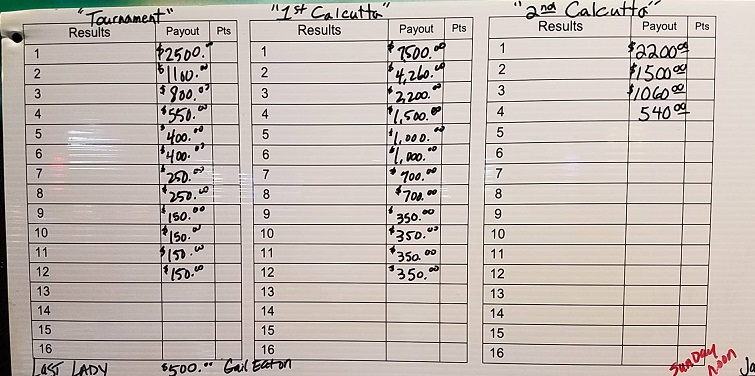 "Tournament"
Results Payout Pts
1 $2500.00
2 $1100.00
3 $800.00
4 $550.00
5 $400.00
6 $400.00
7 $250.00
8 $250.00
9 $150.00
10 $150.00
11 $150.00
12 $150.00
13
14
15
16
LAST LADY $500.00 Gail Eaton
"1st Calcutta"
Results Payout Pts
1 $7500.00
2 $4,260.00
3 $2,200.00
4 $1,500.00
5 $1,000.00
6 $1,000.00
7 $700.00
8 $700.00
9 $350.00
10 $350.00
11 $350.00
12 $350.00
13
14
15
16
"2nd Calcutta"
Results Payout Pts
1 $2200.00
2 $1500.00
3 $1060.00
4 540.00
5
6
7
8
9
10
11
12
13
14
15
16
SUNDAY
Noon